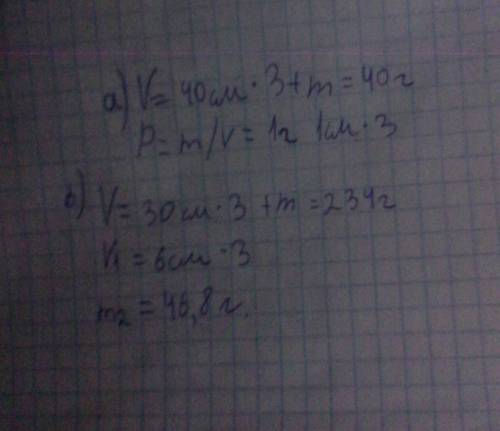 а) V = 40см · 3 + m = 40г
P = m/V = 1г 1см · 3
б) V = 30см · 3 + m = 234г
V₁ = 6см · 3
m₂ = 46,8г.